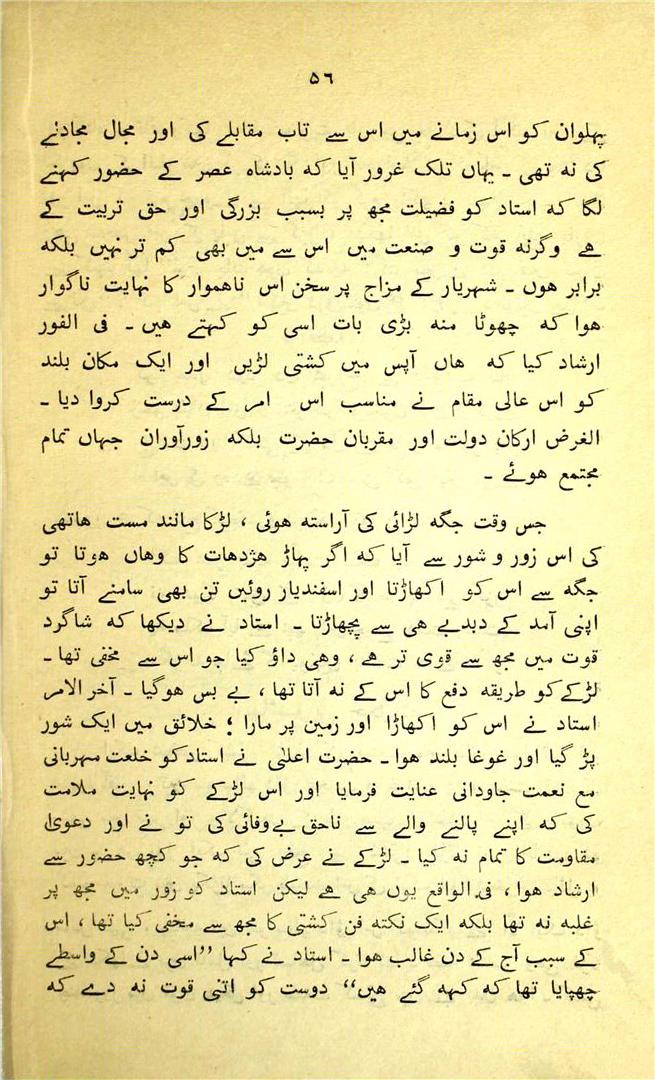 ۵٦
پہلوان کو اس زمانے میں اس سے تاب مقابلے کی اور مجال مجادلے
کی نہ تھی ۔ یہاں تلک غرور آیا کہ بادشاہ عصر کے حضور کہنے
لگا کہ استاد کو فضیلت مجھ پر بسبب بزرگی اور حق تربیت کے
ہے وگرنہ قوت و صنعت میں اس سے میں بھی کم تر نہیں بلکہ
برابر ہوں ۔ شہریار کے مزاج پر سخن اس ناہموار کا نہایت ناگوار
ہوا کہ چھوٹا منہ بڑی بات اسی کو کہتے ہیں ۔ فی الفور
ارشاد کیا کہ ہاں آپس میں کشتی لڑیں اور ایک مکان بلند
کو اس عالی مقام نے مناسب اس امر کے درست کروا دیا ۔
الغرض ارکان دولت اور مقربان حضرت بلکہ زورآوران جہاں تمام
مجتمع ہوئے ۔
جس وقت جگہ لڑائی کی آراستہ ہوئی ، لڑکا مانند مست ہاتھی
کی اس زور و شور سے آیا کہ اگر پہاڑ ہژدھات کا وہاں ہوتا تو
جگہ سے اس کو اکھاڑتا اور اسفندیار روئیں تن بھی سامنے آتا تو
اپنی آمد کے دبدبے ہی سے پچھاڑتا ۔ استاد نے دیکھا کہ شاگرد
قوت میں مجھ سے قوی تر ہے ، وہی داؤ کیا جو اس سے مخفی تھا ۔
لڑکے کو طریقہ دفع کا اس کے نہ آتا تھا ، بے بس ہوگیا ۔ آخر الامر
استاد نے اس کو اکھاڑا اور زمین پر مارا ؛ خلائق میں ایک شور
پڑ گیا اور غوغا بلند ہوا ۔ حضرت اعلیٰ نے استاد کو خلعت مہربانی
مع نعمت جاودانی عنایت فرمایا اور اس لڑکے کو نہایت ملامت
کی کہ اپنے پالنے والے سے ناحق بےوفائی کی تو نے اور دعویٰ
مقاومت کا تمام نہ کیا ۔ لڑکے نے عرض کی کہ جو کچھ حضور سے
ارشاد ہوا ، فی الواقع یوں ہی ہے لیکن استاد کو زور میں مجھ پر
غلبہ نہ تھا بلکہ ایک نکتہ فن کشتی کا مجھ سے مخفی کیا تھا ، اس
کے سبب آج کے دن غالب ہوا ۔ استاد نے کہا ”اسی دن کے واسطے
چھپایا تھا کہ کہہ گئے ہیں“ دوست کو اتنی قوت نہ دے کہ